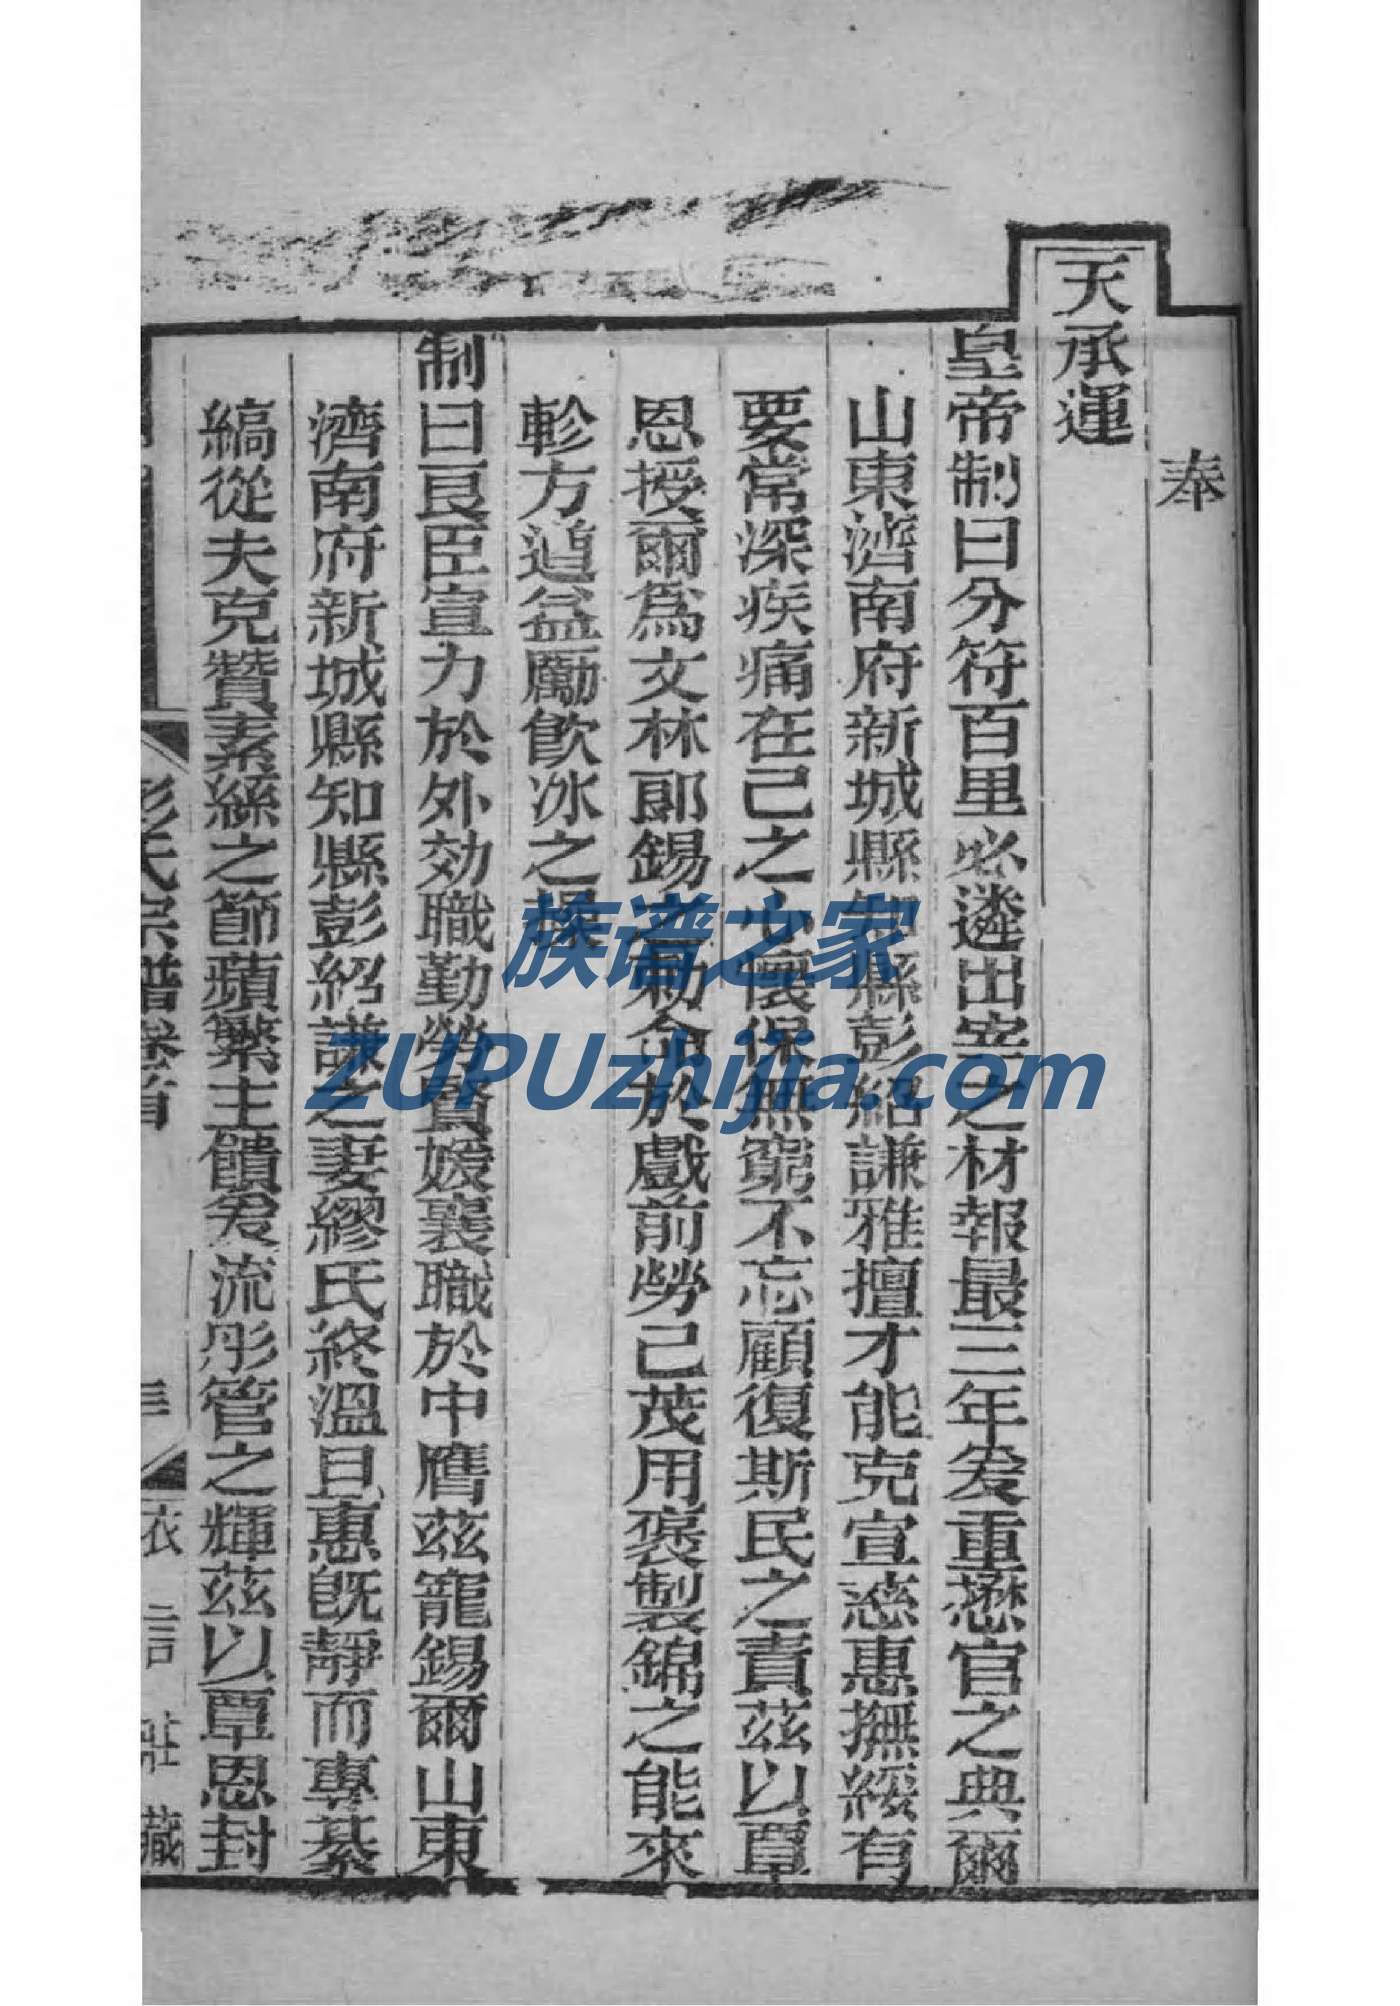 奉
天承運
皇帝制曰分符百里必遴出宰之材報最三年爰重懋官之典爾
山東濟南府新城縣知縣彭紹謙雅擅才能克宣慈惠撫綏有
要常深疾痛在己之心懷保無窮不忘顧復斯民之責茲以覃
恩授爾爲文林郎錫之勅命於戲前勞已茂用褒製錦之能來
軫方遒益勵飮冰之操
制曰良臣宣力於外効職勤勞賢媛襄職於中膺茲寵錫爾山東
濟南府新城縣知縣彭紹謙之妻繆氏終溫且惠旣靜而專綦
縞從夫克贊素絲之節蘋蘩主饋爰流彤管之輝茲以覃恩封
彭氏宗譜卷首
三
衣言莊藏
族谱之家
ZUPUzhijia.com